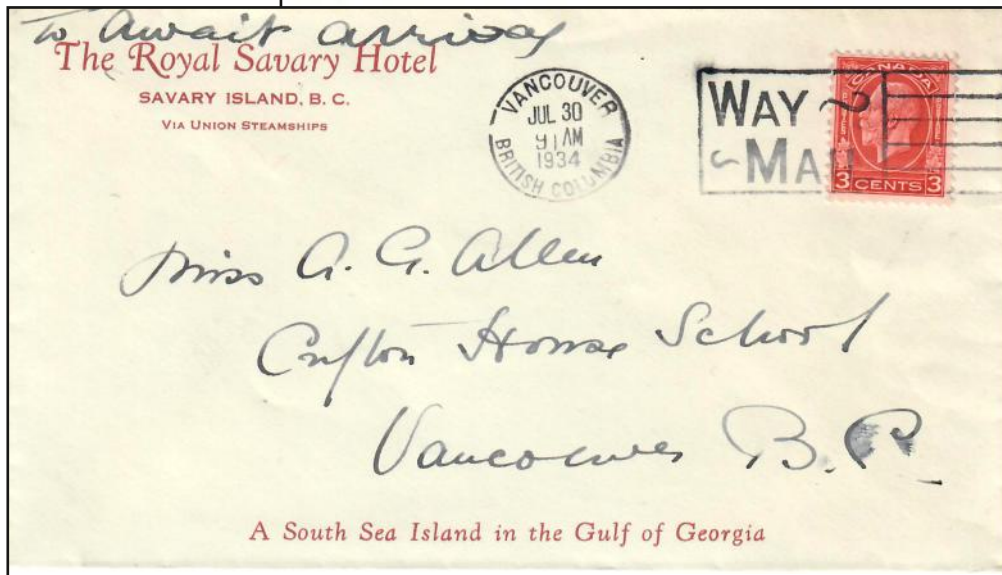 To Await arrival
The Royal Savary Hotel
SAVARY ISLAND, B. C.
VIA UNION STEAMSHIPS
VANCOUVER
JUL 30
9 AM
1934
BRITISH COLUMBIA
WAY
MAIL
CANADA
3 CENTS 3
Miss A. G. Allen
Crofton House School
Vancouver B.C.
A South Sea Island in the Gulf of Georgia